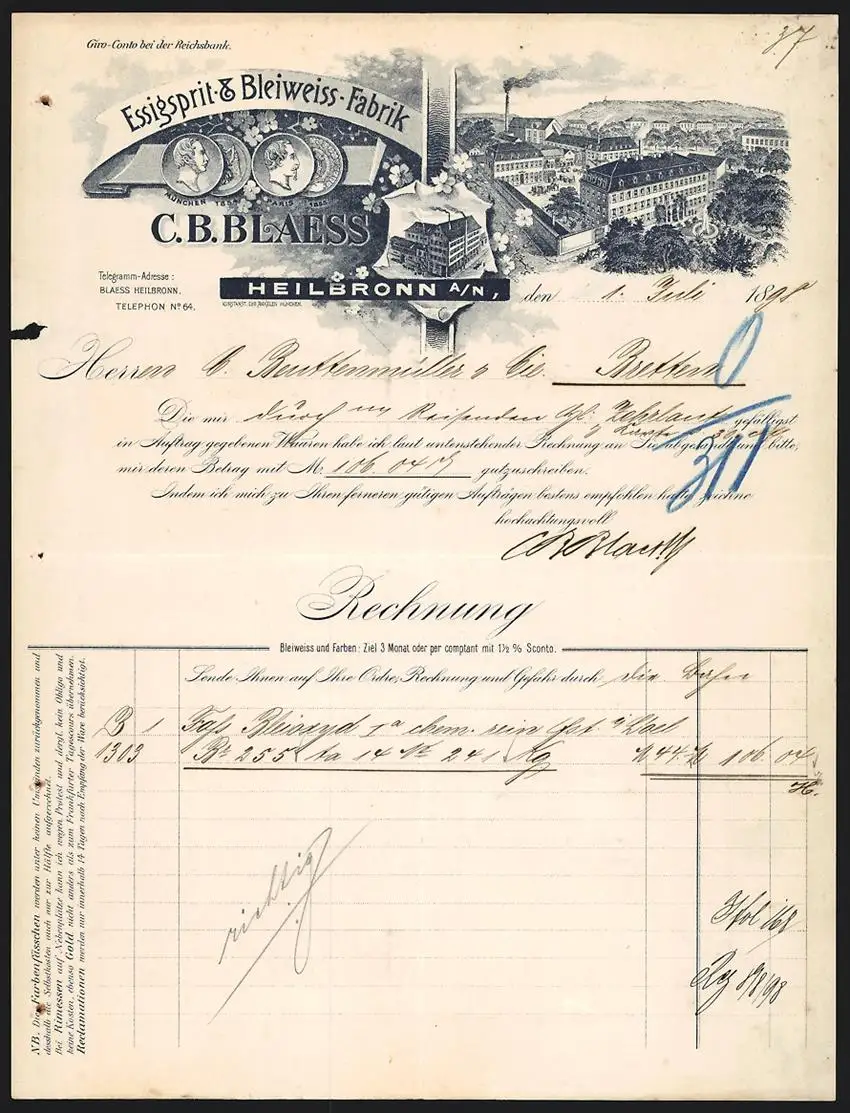 Giro-Conto bei der Reichsbank.
37
Essigsprit- & Bleiweiss-Fabrik
MÜNCHEN 1854 PARIS 1855
C.B.BLAESS
Telegramm-Adresse:
BLAESS HEILBRONN.
TELEPHON No 64.
HEILBRONN A/N,
den 1. Juli 1898
Herren C. Beuttenmüller & Cie. Bretten
Die mir durch m/ Reisenden Hl: gefälligst
in Auftrag gegebenen Waaren habe ich laut untenstehender Rechnung an Sie abgesandt und bitte,
mir deren Betrag mit M. 106.04 gutzuschreiben.
Indem ich mich zu Ihren ferneren gütigen Aufträgen bestens empfohlen halte, zeichne
hochachtungsvoll
CB Blaess
Rechnung
Bleiweiss und Farben: Ziel 3 Monat oder per comptant mit 1½ % Sconto.
Sende Ihnen auf Ihre Ordre, Rechnung und Gefahr durch die Bahn
B 1 Fass Bleioxyd Ia chem. rein
1303 Bo 255 ta 14 No 241 Kg M 44.- 106.04
richtig
NB. Die Farbenfässchen werden unter keinen Umständen zurückgenommen und
deshalb die Selbstkosten auch nur zur Hälfte aufgerechnet.
Bei Rimessen auf Nebenplätze kann ich wegen Protest und dergl. kein Obligo und
keine Kosten, ebenso Gold nicht anders als zum Frankfurter Tagescours übernehmen.
Reclamationen werden nur innerhalb 14 Tagen nach Empfang der Ware berücksichtigt.